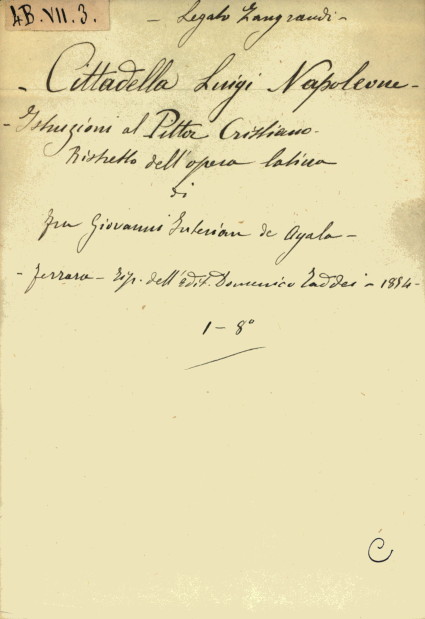 AB. VII. 3.
- Legato Zangrandi -
- Cittadella Luigi Napoleone -
- Istruzioni al Pittor Cristiano -
Ristretto dell'opera latina
di
Fra Giovanni Interian de Ayala -
- Ferrara - Tip. dell'Edit. Domenico Taddei - 1854 -
1 - 8°
C